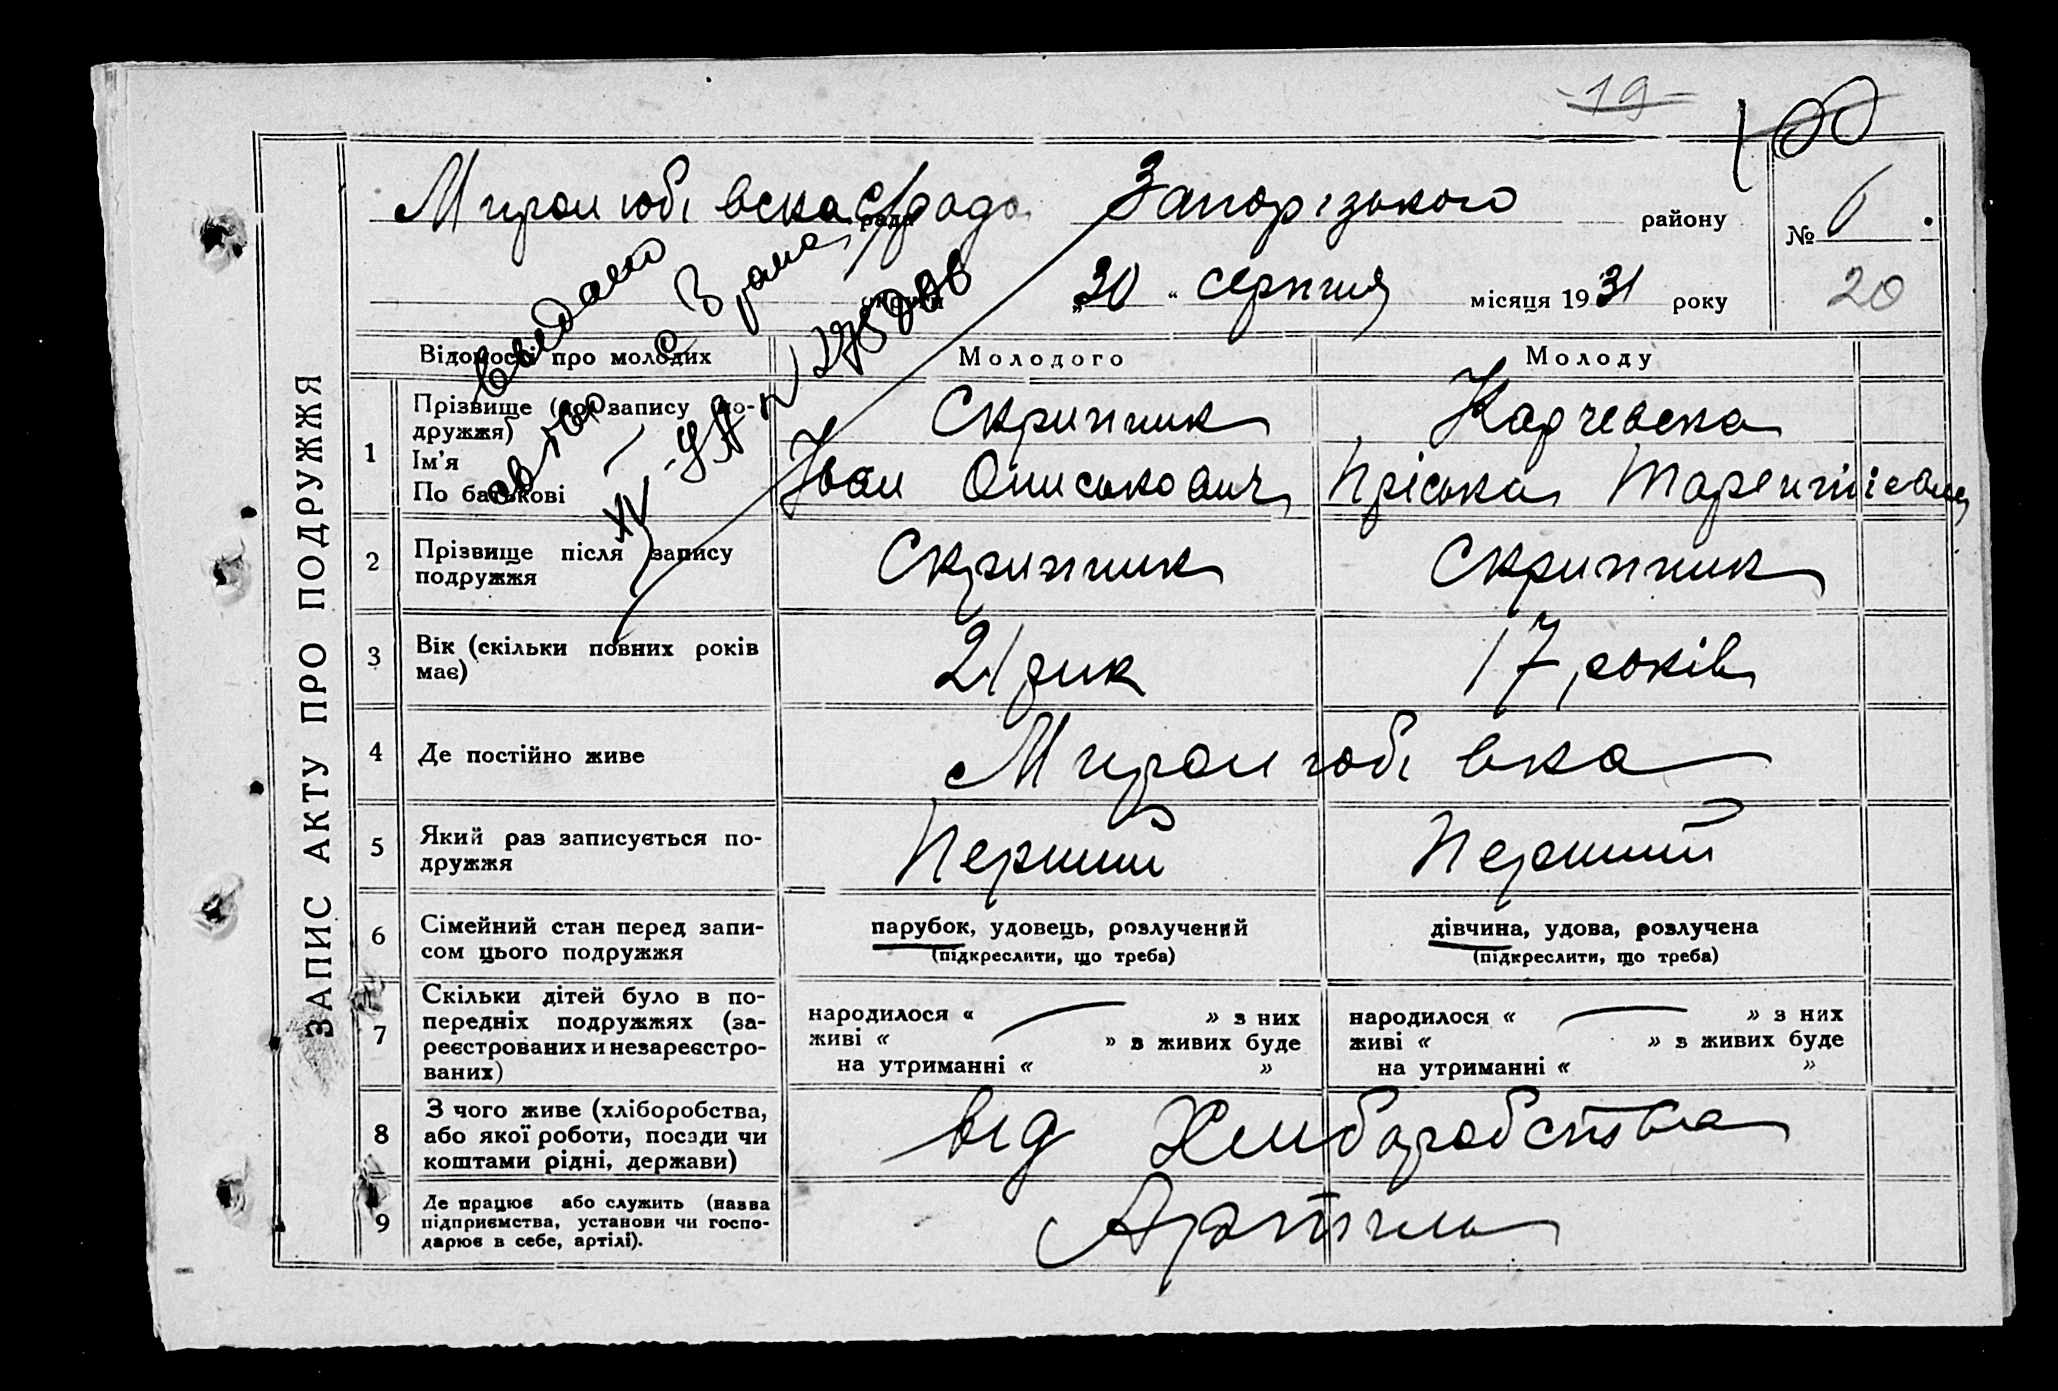 19
100
Миролюбівська с/рада Запорізького району № 6
ради
округи „20“ серпня місяця 1931 року 20
Видано
свід-во
ЗАПИС АКТУ ПРО ПОДРУЖЖЯ
Відомості про молодих Молодого Молоду
1 Прізвище (до запису по-
дружжя) Скрипник
Ім'я
По батькові Іван Ониськович Пріська
2 Прізвище після запису
подружжя Скрипник Скрипник
3 Вік (скільки повних років
має) 21 рик 17 років
4 Де постійно живе Миролюбівка
5 Який раз записується по-
дружжя Перший Перший
6 Сімейний стан перед запи-
сом цього подружжя
парубок, удовець, розлучений дівчина, удова, розлучена
(підкреслити, що треба) (підкреслити, що треба)
7 Скільки дітей було в по-
передніх подружжях (за-
реєстрованих и незареєстро-
ваних)
народилося « » з них народилося « » з них
живі « » в живих буде живі « » з живих буде
на утриманні « » на утриманні « »
8 З чого живе (хліборобства,
або якої роботи, посади чи
коштами рідні, держави)
від Хлиборобства
9 Де працює або служить (назва
підприємства, установи чи госпо-
дарює в себе, артілі).
Артіль